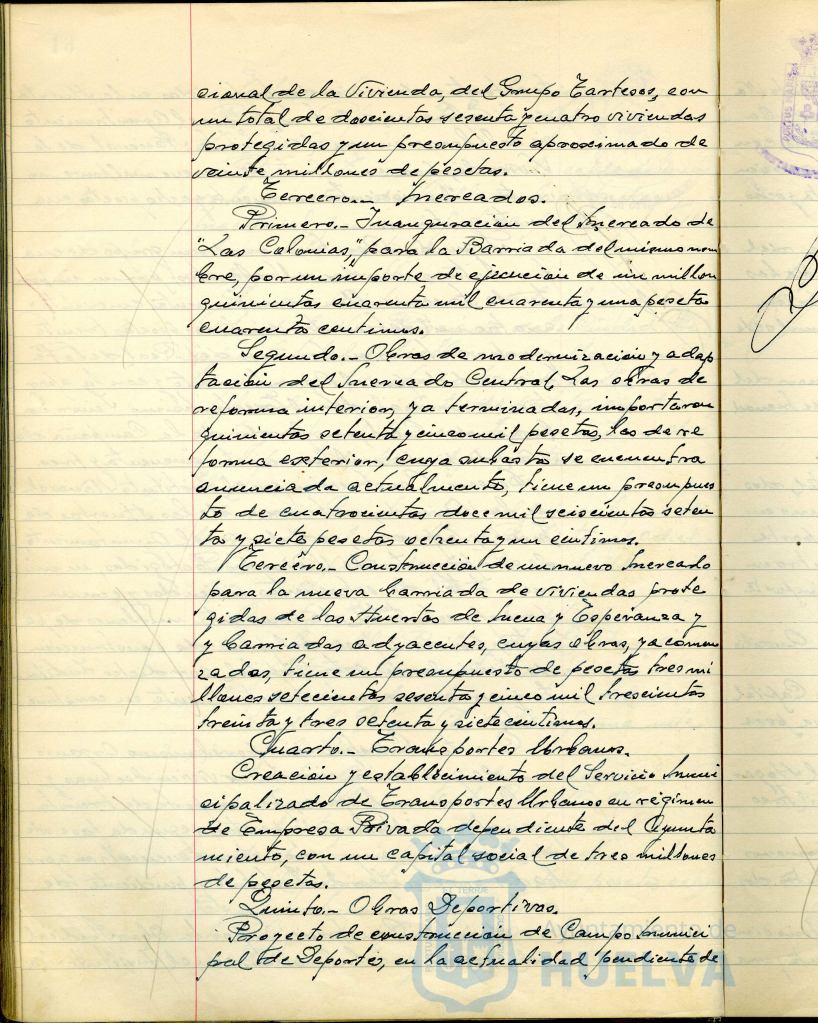 cional de la Vivienda, del Grupo Tartesos, con
un total de doscientas sesenta y cuatro viviendas
protegidas y un presupuesto aproximado de
veinte millones de pesetas.
Tercero.- Mercados.
Primero.- Inauguración del Mercado de
"Las Colonias," para la Barriada del mismo nom
bre, por un importe de ejecución de un millon
quinientas cuarenta mil cuarenta y una pesetas
cuarenta centimos.
Segundo.- Obras de modernización y adap
tación del Mercado Central, Las obras de
reforma interior, ya terminadas, importaron
quinientas setenta y cinco mil pesetas, las de re
forma exterior, cuya subasta se encuentra
anunciada actualmente, tiene un presupues
to de cuatrocientas doce mil seiscientas seten
ta y siete pesetas ochenta y un centimos.
Tercero.- Construcción de un nuevo Mercado
para la nueva barriada de viviendas prote
gidas de las Huertas de Mena y Esperanza y
y barriadas adyacentes, cuyas obras, ya comen
zadas, tiene un presupuesto de pesetas tres mi
llones setecientas sesenta y cinco mil trescientas
treinta y tres setenta y siete centimos.
Cuarto.- Transportes Urbanos.
Creación y establecimiento del Servicio Muni
cipalizado de Transportes Urbanos en régimen
de Empresa Privada dependiente del Ayunta
miento, con un capital social de tres millones
de pesetas.
Quinto.- Obras Deportivas.
Proyecto de construcción de Campo Munici
pal de Deportes, en la actualidad pendiente de
Ayuntamiento de
HUELVA